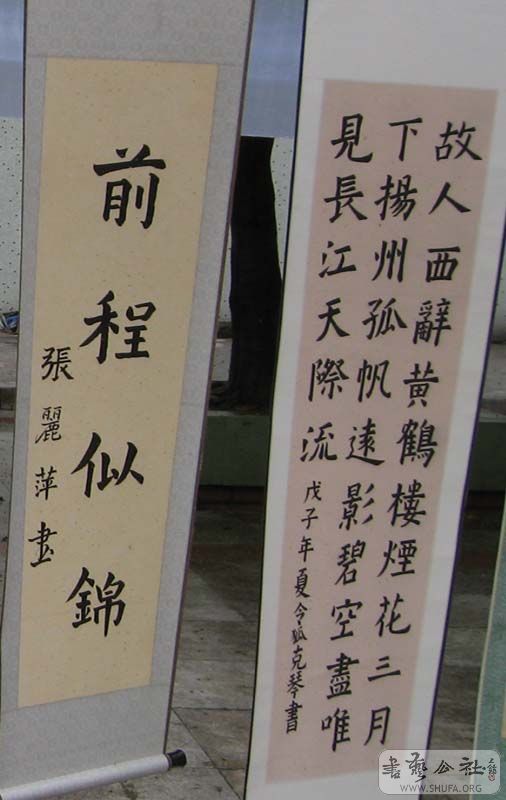 故人西辭黄鶴樓煙花三月
下揚州孤帆遠影碧空盡唯
見長江天際流
戊子年夏令狐克琴書
前程似錦
張麗萍書
書藝公社
WWW.SHUFA.ORG